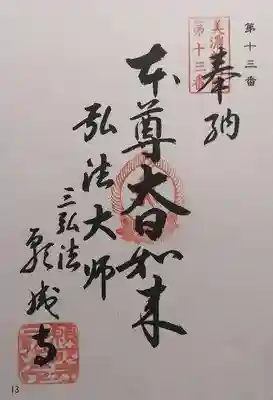 第十三番
美濃
第十三番
奉納
本尊大日如来
弘法大師
三弘法
寺
13